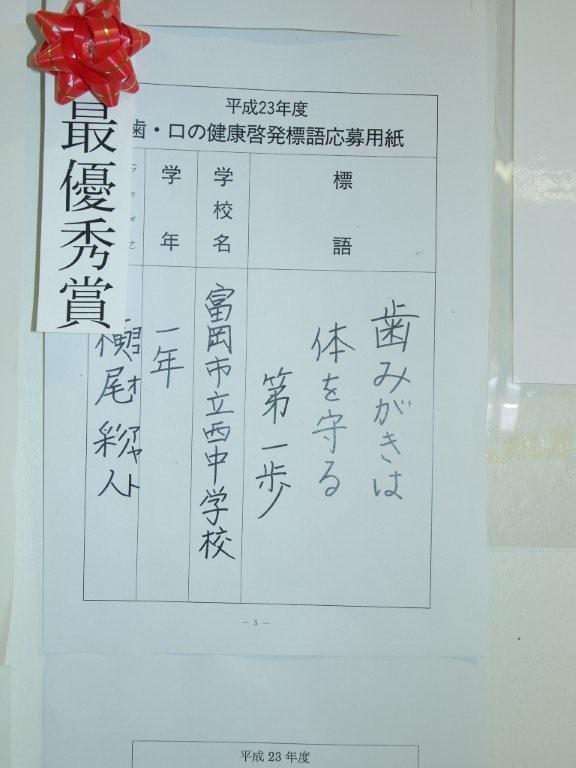 最優秀賞
平成23年度
歯・口の健康啓発標語応募用紙
標語
歯みがきは
体を守る
第一歩
学校名
富岡市立西中学校
学年
一年
フリガナ
横尾彩人
ヨコオ アヤト
－5－
平成23年度